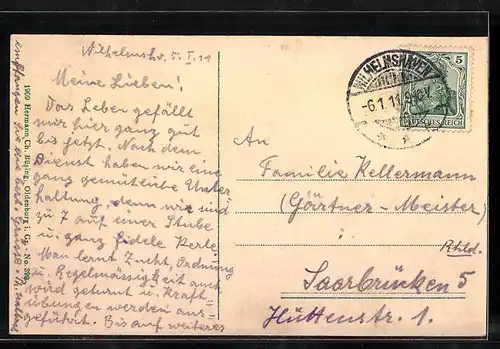 Wilhelmshv. 5. I. 11
Meine Lieben!
Das Leben gefällt
mir hier ganz gut
bis jetzt. Nach dem
Dienst haben wir eine
ganz gemütliche Unter
haltung, denn wir sind
zu 7 auf einer Stube
u. ganz fidele Kerle.
Man lernt Zucht, Ordnung
u. Regelmässigkeit auch
wird geturnt u. Kraft-
übungen werden aus-
geführt. Bis auf weiteres
empfangen Sie die besten Grüsse
1909 Hermann Ch. Büsing, Oldenburg i. Gr. No.
WILHELMSHAVEN
-6.1.11
5
DEUTSCHES REICH
An
Familie Kellermann
(Gärtner-Meister)
Rhld.
Saarbrücken 5
Hüttenstr. 1.